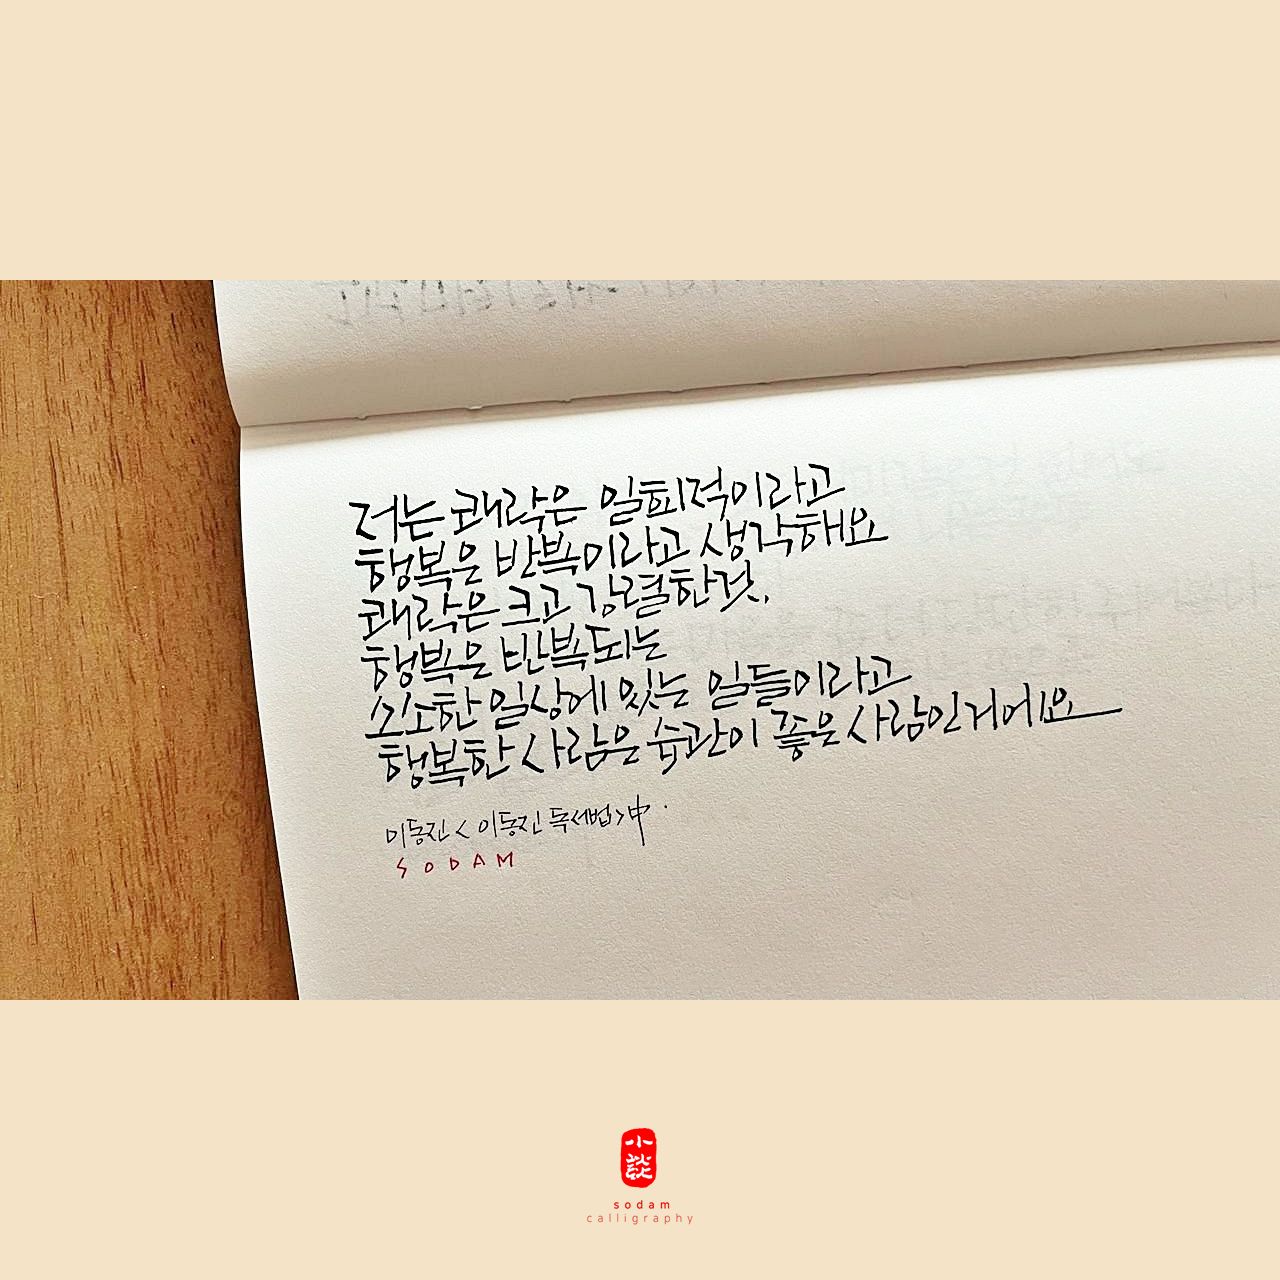 저는 쾌락은 일회적이라고
행복은 반복이라고 생각해요
쾌락은 크고 강렬한것,
행복은 반복되는
소소한 일상에 있는 일들이라고
행복한 사람은 습관이 좋은 사람인거에요
이동진 < 이동진 독서법 > 中.
SODAM
小談
sodam
calligraphy